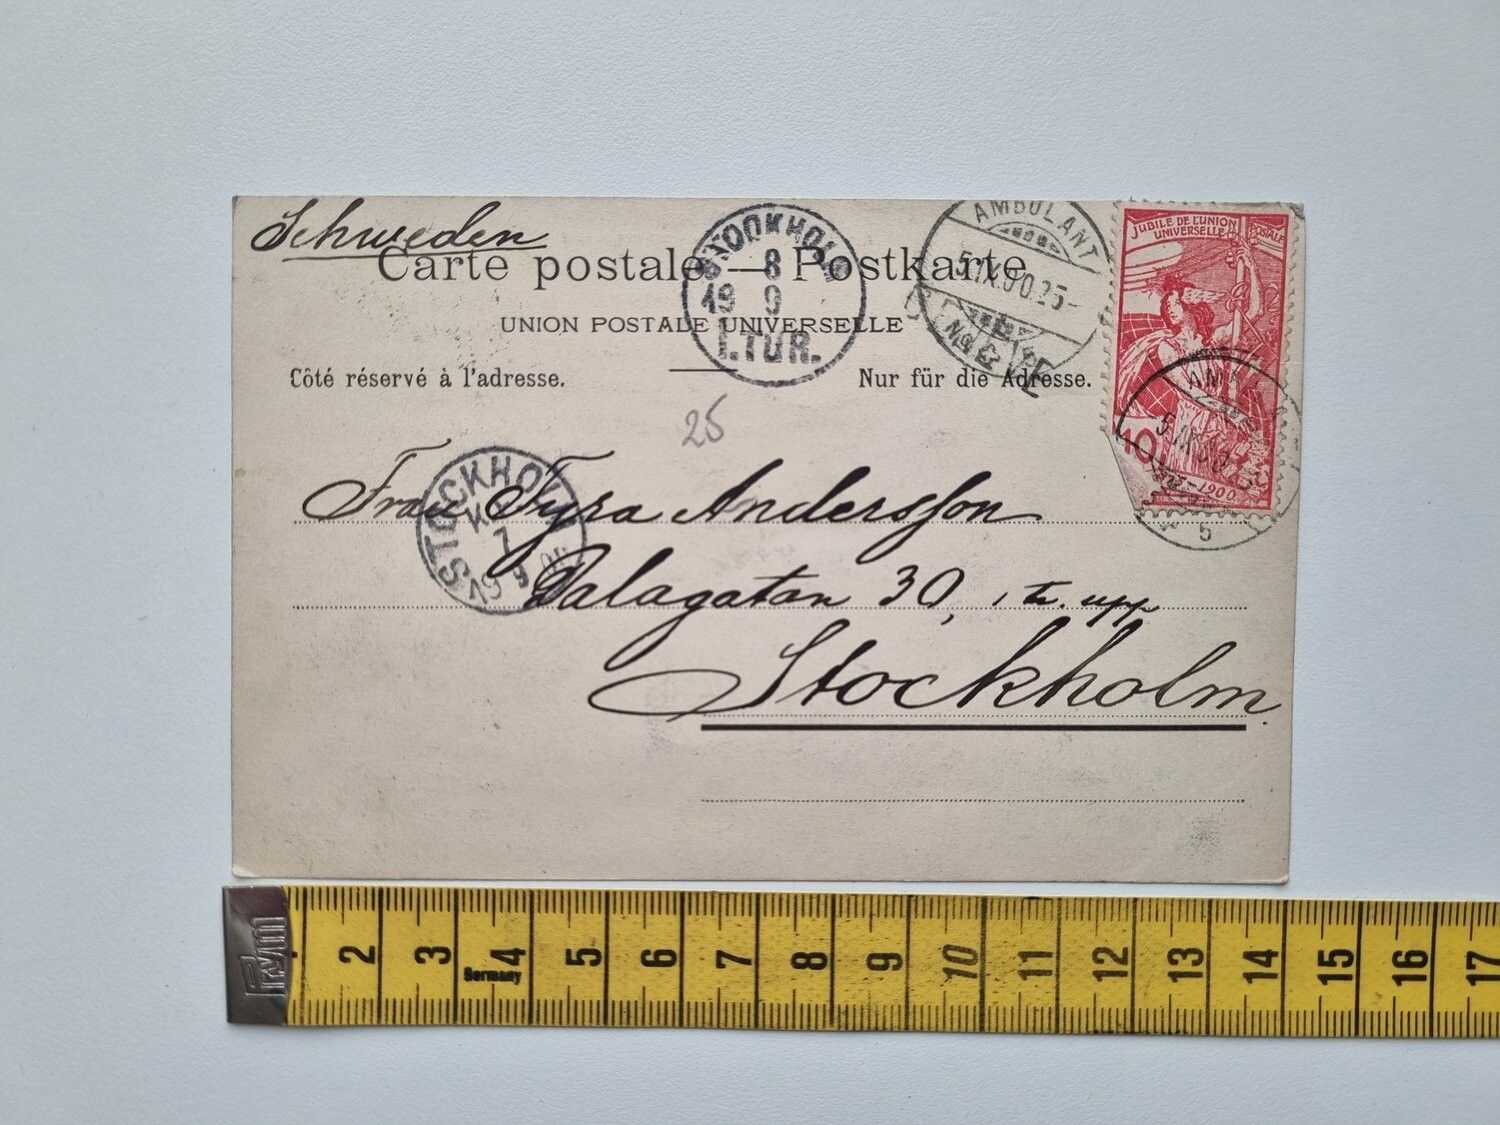 Schweden
Carte postale — Postkarte
UNION POSTALE UNIVERSELLE
Côté réservé à l'adresse.
Nur für die Adresse.
STOCKHOLM
8
19 9
1.TUR.
AMBULANT
5.IX.00.25-
JUBILÉ DE L'UNION POSTALE
UNIVERSELLE
10
1900
AMBULANT
5
25
STOCKHOLM
K
7
19 9 00
Frau Tyra Andersson
Dalagatan 30, 1 tr. upp
Stockholm.
Prym
1 2 3 4 5 6 7 8 9 10 11 12 13 14 15 16 17
Germany